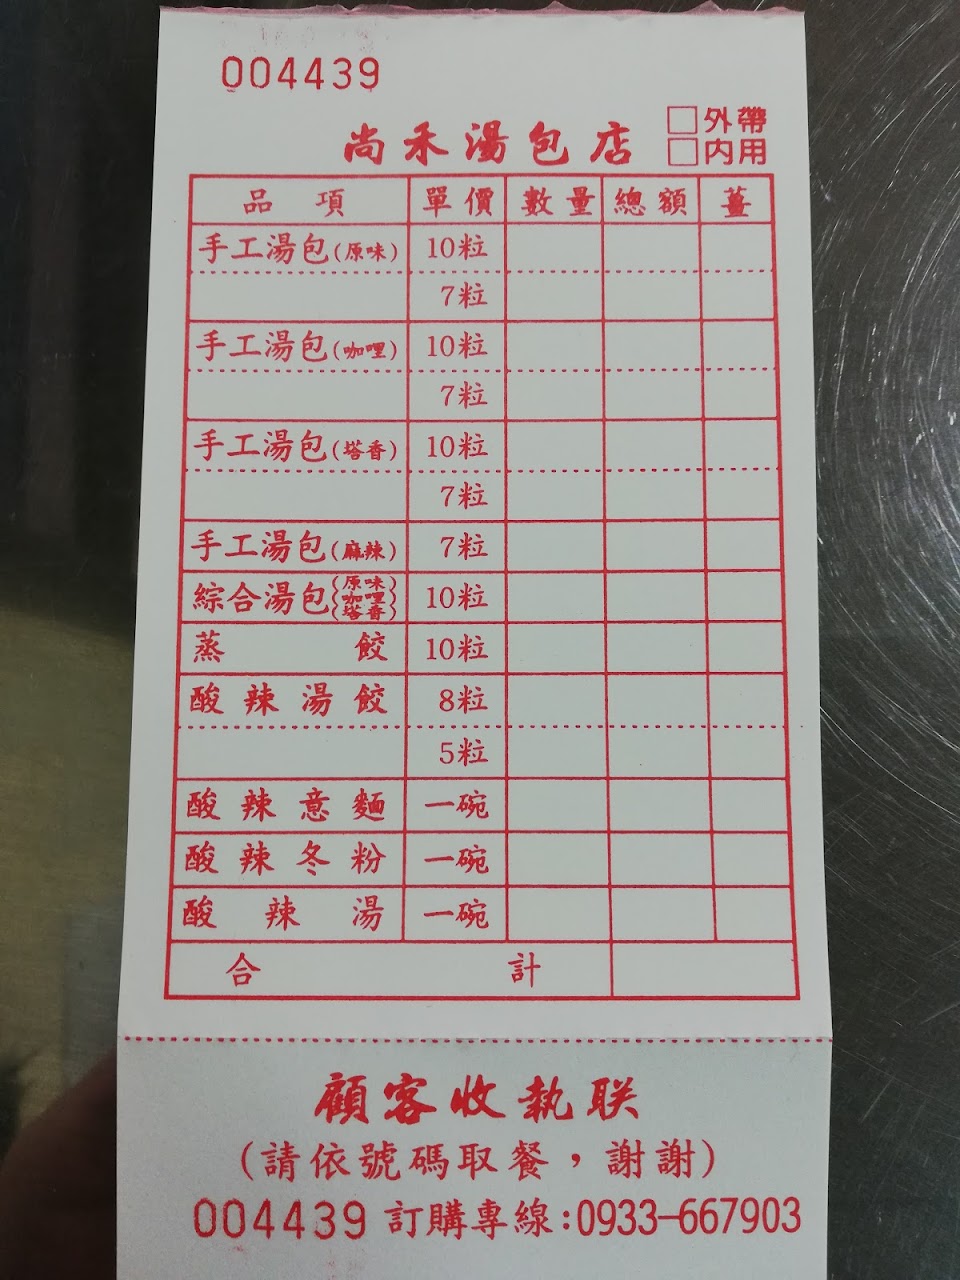 004439
尚禾湯包店
□外帶
□內用
品項 單價 數量 總額 薑
手工湯包(原味) 10粒
7粒
手工湯包(咖哩) 10粒
7粒
手工湯包(塔香) 10粒
7粒
手工湯包(麻辣) 7粒
綜合湯包(原味)(咖哩)(塔香) 10粒
蒸餃 10粒
酸辣湯餃 8粒
5粒
酸辣意麵 一碗
酸辣冬粉 一碗
酸辣湯 一碗
合計
顧客收執联
(請依號碼取餐，謝謝)
004439 訂購專線:0933-667903